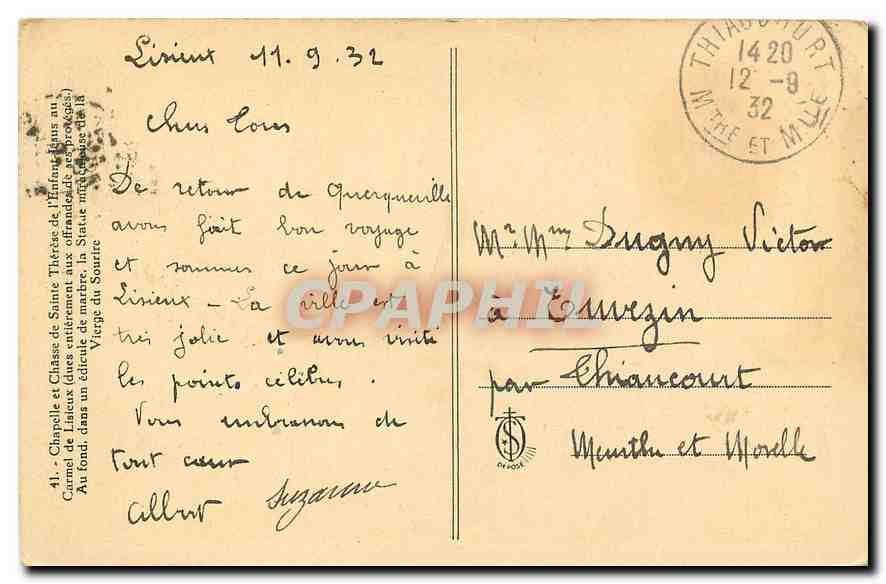 Lisieux 11.9.32
Chers tous
De retour de Querqueville
avons fait bon voyage
et sommes ce jour à
Lisieux - La ville est
très jolie et avons visité
les points célèbres.
Vous embrassons de
tout coeur
Albert Suzanne
41. - Chapelle et Châsse de Sainte Thérèse de l'Enfant Jésus au
Carmel de Lisieux (dues entièrement aux offrandes de ses protégés.)
Au fond, dans un édicule de marbre, la Statue miraculeuse de la
Vierge du Sourire
THIAUCOURT
14 20
12 -9
32
MTHE ET MLLE
Mr. Mme Dugny Victor
à Euvezin
par Thiaucourt
Meurthe et Moselle
DÉPOSÉ
CPAPHIL